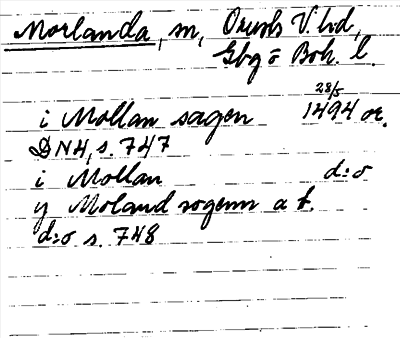 Morlanda, sn, Orusts V. hd,
Gbg o Boh. l.
28/5
i Mollan sagen 1494 or.
DN4, s. 747
i Mollan d:o
y Moland sogenn a f.
d:o s. 748